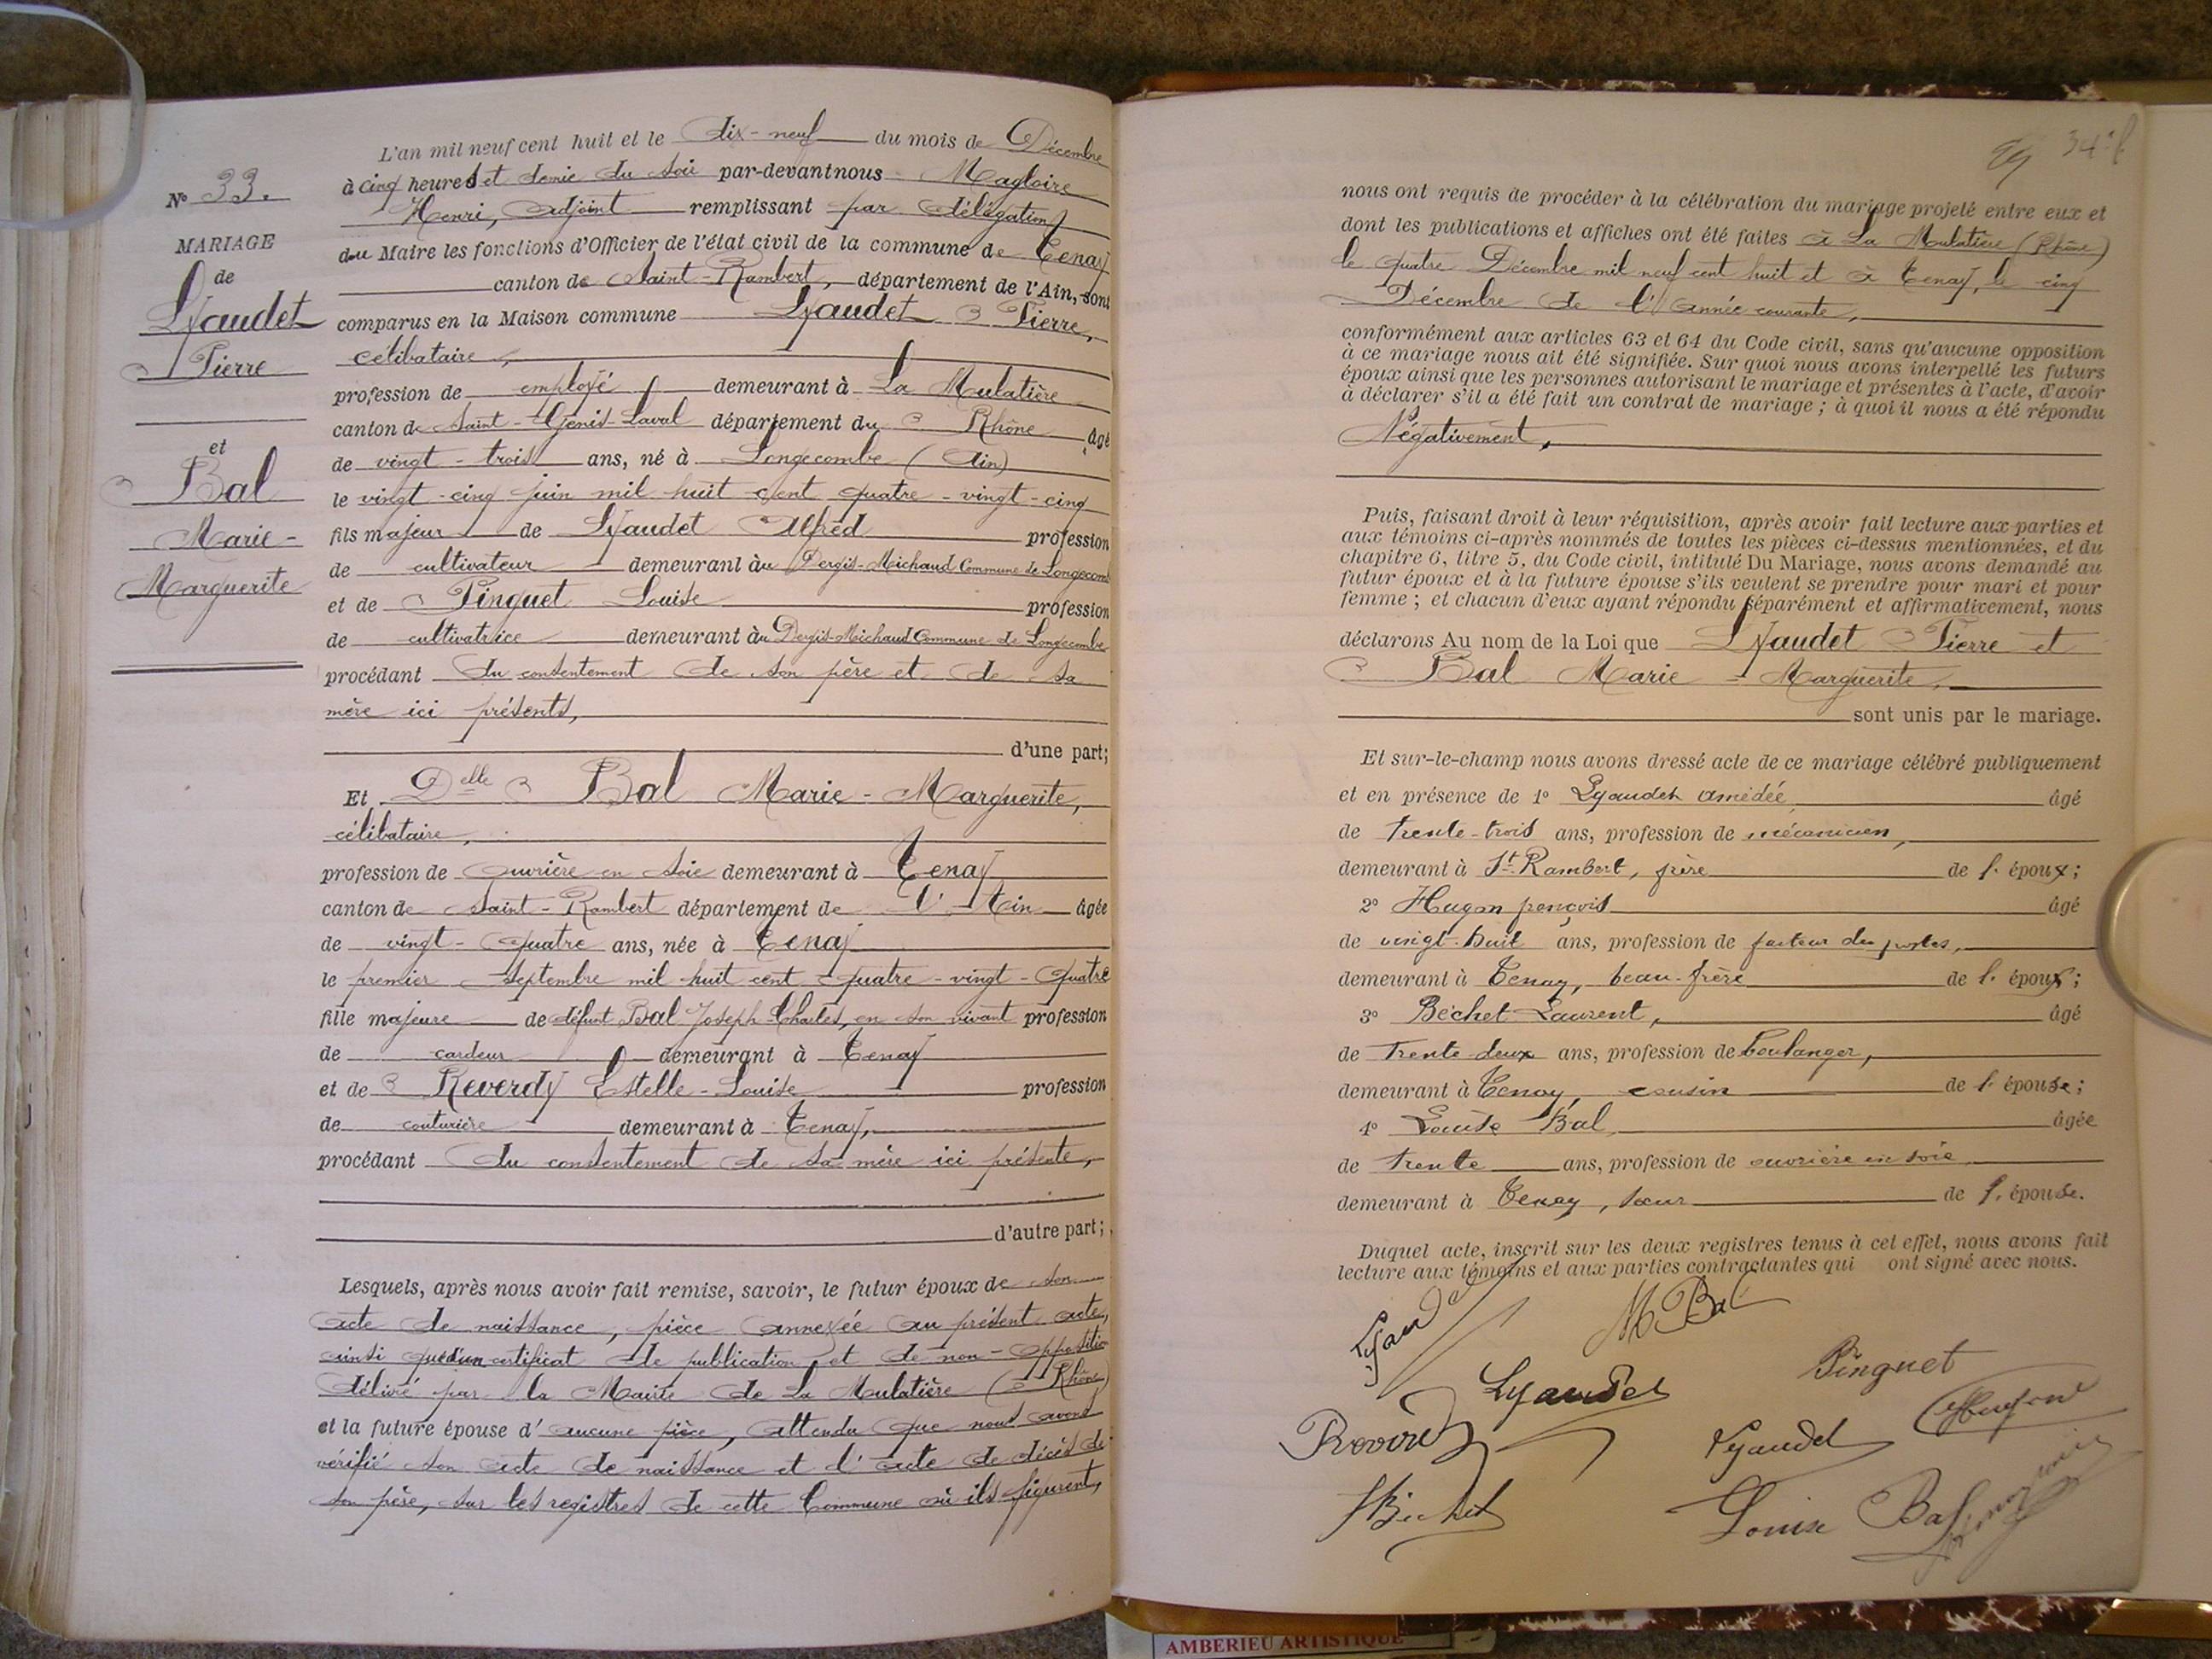 N° 33.
MARIAGE
de
Lyaudet
Pierre
et
Bal
Marie-
Marguerite
L'an mil neuf cent huit et le dix-neuf du mois de Décembre
à cinq heures et demie du soir par-devant nous Magloire
Henri, adjoint remplissant par délégation
du Maire les fonctions d'Officier de l'état civil de la commune de Tenay
canton de Saint-Rambert, département de l'Ain, sont
comparus en la Maison commune Lyaudet Pierre,
célibataire,
profession de employé demeurant à La Mulatière
canton de Saint-Genis-Laval département du Rhône âgé
de vingt-trois ans, né à Longecombe (Ain)
le vingt-cinq juin mil huit cent quatre-vingt-cinq
fils majeur de Lyaudet Alfred profession
de cultivateur demeurant au Dergis-Michaud Commune de Longecombe
et de Pinguet Louise profession
de cultivatrice demeurant au Dergis-Michaud Commune de Longecombe
procédant du consentement de son père et de sa
mère ici présents,
d'une part;
Et Delle Bal Marie-Marguerite,
célibataire,
profession de ouvrière en soie demeurant à Tenay
canton de Saint-Rambert département de l'Ain âgée
de vingt-quatre ans, née à Tenay
le premier septembre mil huit cent quatre-vingt-quatre
fille majeure de défunt Bal Joseph-Charles, en son vivant profession
de cardeur demeurant à Tenay
et de Reverdy Estelle-Louise profession
de couturière demeurant à Tenay,
procédant du consentement de sa mère ici présente,
d'autre part;
Lesquels, après nous avoir fait remise, savoir, le futur époux de son
acte de naissance, pièce annexée au présent acte,
ainsi qu'un certificat de publication et de non-opposition
délivré par la Mairie de La Mulatière (Rhône)
et la future épouse d'aucune pièce, attendu que nous avons
vérifié son acte de naissance et l'acte de décès de
son père, sur les registres de cette Commune où ils figurent,
34
nous ont requis de procéder à la célébration du mariage projeté entre eux et
dont les publications et affiches ont été faites à La Mulatière (Rhône)
le quatre Décembre mil neuf cent huit et à Tenay, le cinq
Décembre de l'année courante,
conformément aux articles 63 et 64 du Code civil, sans qu'aucune opposition
à ce mariage nous ait été signifiée. Sur quoi nous avons interpellé les futurs
époux ainsi que les personnes autorisant le mariage et présentes à l'acte, d'avoir
à déclarer s'il a été fait un contrat de mariage; à quoi il nous a été répondu
Négativement,
Puis, faisant droit à leur réquisition, après avoir fait lecture aux parties et
aux témoins ci-après nommés de toutes les pièces ci-dessus mentionnées, et du
chapitre 6, titre 5, du Code civil, intitulé Du Mariage, nous avons demandé au
futur époux et à la future épouse s'ils veulent se prendre pour mari et pour
femme; et chacun d'eux ayant répondu séparément et affirmativement, nous
déclarons Au nom de la Loi que Lyaudet Pierre et
Bal Marie-Marguerite,
sont unis par le mariage.
Et sur-le-champ nous avons dressé acte de ce mariage célébré publiquement
et en présence de 1° Lyaudet Amédée âgé
de trente-trois ans, profession de mécanicien,
demeurant à St-Rambert, frère de l'époux;
2° Hugon françois âgé
de vingt-huit ans, profession de facteur des postes,
demeurant à Tenay, beau-frère de l'époux;
3° Béchet Laurent, âgé
de trente-deux ans, profession de boulanger,
demeurant à Tenay, cousin de l'épouse;
4° Louise Bal âgée
de trente ans, profession de ouvrière en soie
demeurant à Tenay, sœur de l'épouse.
Duquel acte, inscrit sur les deux registres tenus à cet effet, nous avons fait
lecture aux témoins et aux parties contractantes qui ont signé avec nous.
Lyaudet
M Bal
Lyaudet
Pinguet
Lyaudet
Hugon
Béchet
Louise Bal
AMBERIEU ARTISTIQUE